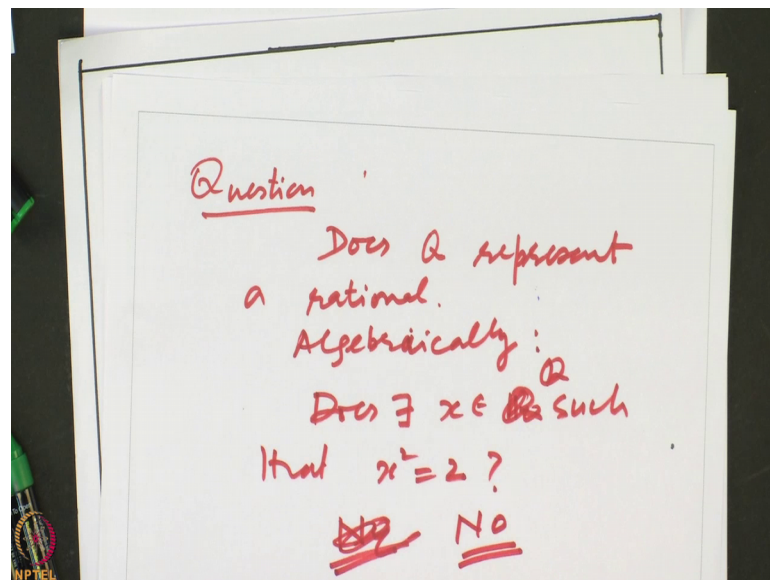 Question
Does Q represent
a rational.
Algebraically :
Does ∃ x ∈ Q such
that x² = 2 ?
NO
NPTEL